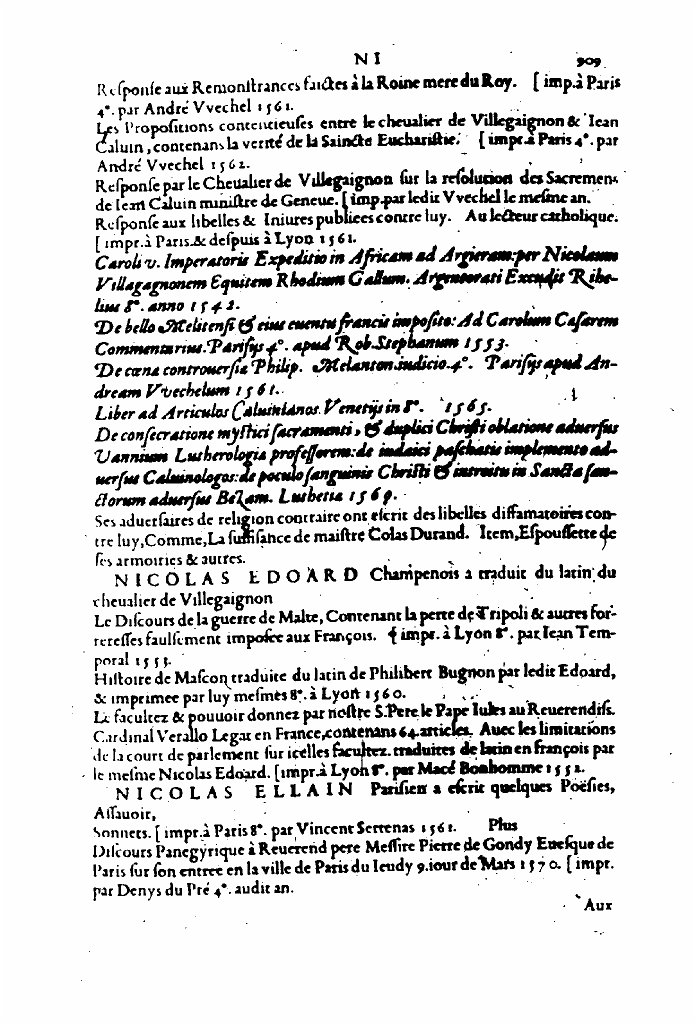 N I 909
Reſponſe aux Remonſtrances faictes à la Roine mere du Roy. [imp.à Paris
4°. par André Vvechel 1561.
Les Propoſitions contentieuſes entre le cheualier de Villegaignon & Iean
Caluin, contenans la verité de la Saincte Euchariſtie. [impr.à Paris 4°. par
André Vvechel 1562.
Reſponſe par le Cheualier de Villegaignon ſur la reſolution des Sacremens
de Iean Caluin miniſtre de Geneue. [imp.par ledit Vvechel le meſme an.
Reſponſe aux libelles & Iniures publiees contre luy. Au lecteur catholique.
[impr.à Paris & deſpuis à Lyon 1561.
Caroli v. Imperatoris Expeditio in Africam ad Argieram:per Nicolaum
Villagagnonem Equitem Rhodium Gallum. Argentorati Excudit Rihe-
lius 8°. anno 1542.
De bello Melitenſi & eius euentu francis impoſito: Ad Carolum Caſarem
Commentarius. Pariſijs 4°. apud Rob. Stephanum 1553.
De cœna controuerſia Philip. Melanton.iudicio.4°. Pariſijs apud An-
dream Vvechelum 1561.
Liber ad Articulos Caluinianos. Venetijs in 8°. 1565.
De conſecratione myſtici ſacramenti, & duplici Chriſti oblatione aduerſus
Vannium Lutherologia profeſſorem: de iudaici paſchatis implemento ad-
uerſus Caluinologos: de poculo ſanguinis Chriſti & introitu in Sancta ſan-
ctorum aduerſus Bezam. Luthetia 1569.
Ses aduerſaires de religion contraire ont eſcrit des libelles diffamatoires con-
tre luy,Comme,La ſuffiſance de maiſtre Colas Durand. Item,Eſpouſſette de
ſes armoiries & autres.
NICOLAS EDOARD Champenois a traduit du latin du
cheualier de Villegaignon
Le Diſcours de la guerre de Malte, Contenant la perte de Tripoli & autres for-
tereſſes faulſement impoſee aux François. [impr. à Lyon 8°. par Iean Tem-
poral 1553.
Hiſtoire de Maſcon traduite du latin de Philibert Bugnon par ledit Edoard,
& imprimee par luy meſmes 8°. à Lyon 1560.
La facultez & pouuoir donnez par noſtre S.Pere le Pape Iules au Reuerendiſſ.
Cardinal Verallo Legat en France,contenans 64.articles. Auec les limitations
de la court de parlement ſur icelles facultez. traduites de latin en françois par
le meſme Nicolas Edoard. [impr.à Lyon 8°. par Macé Bonhomme 1552.
NICOLAS ELLAIN Pariſien a eſcrit quelques Poëſies,
Aſſauoir,
Sonnets. [impr.à Paris 8°. par Vincent Sertenas 1561. Plus
Diſcours Panegyrique à Reuerend pere Meſſire Pierre de Gondy Eueſque de
Paris ſur ſon entree en la ville de Paris du Ieudy 9.iour de Mars 1570. [impr.
par Denys du Pré 4°. audit an.
Aux